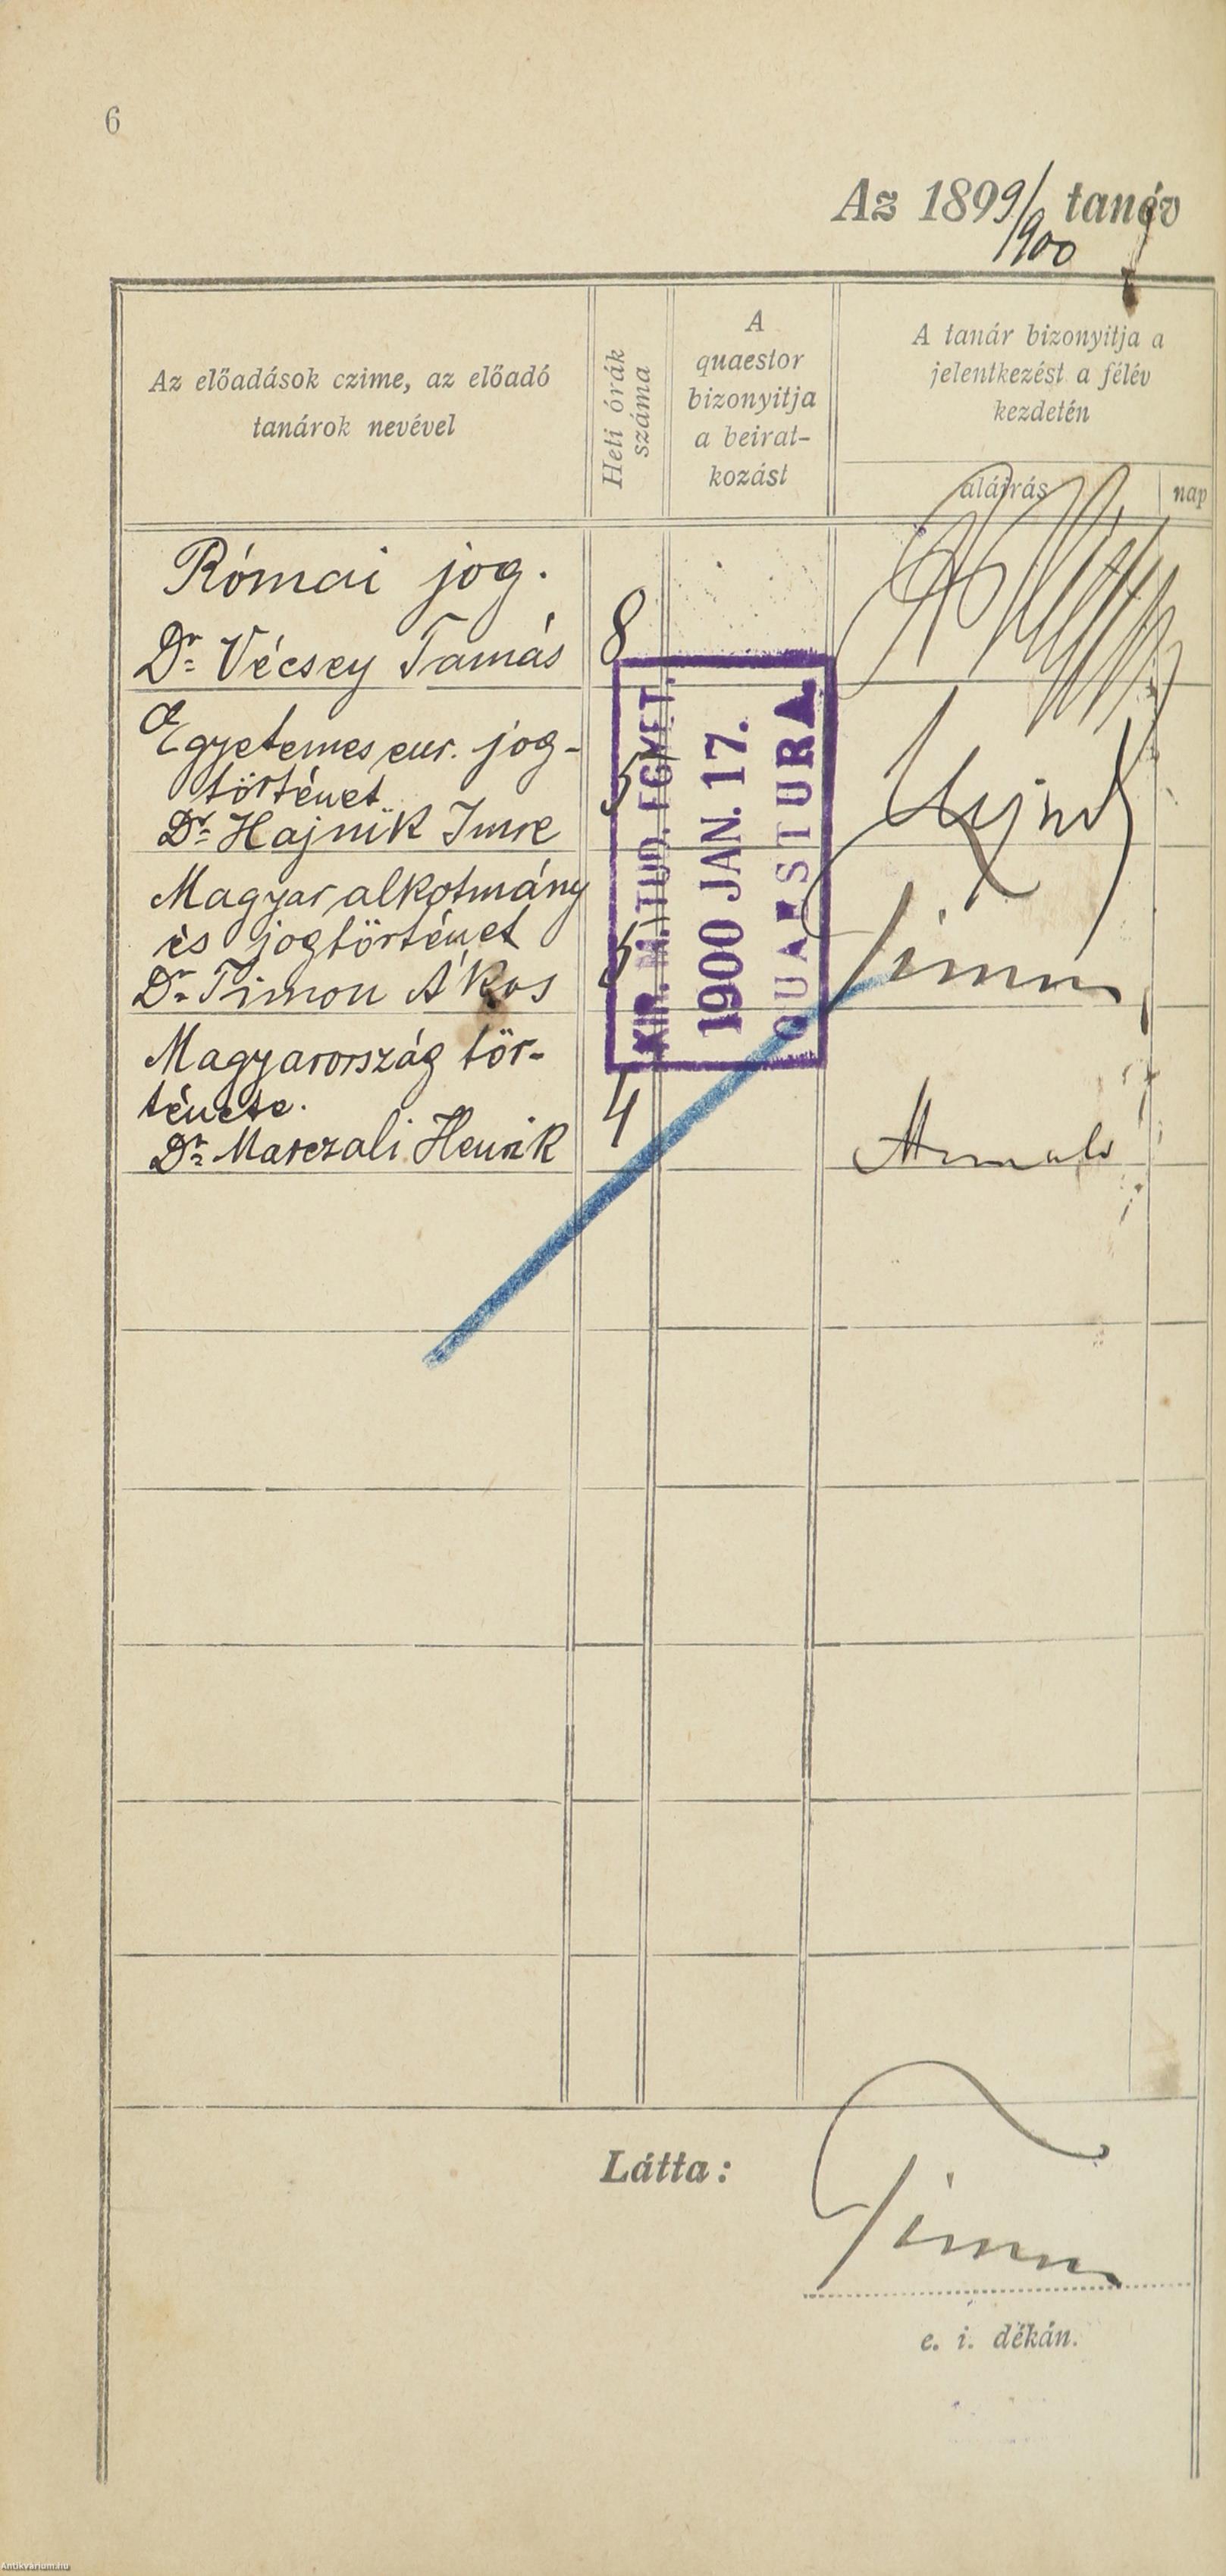 6
Az 1899/900 tanév
Az előadások czime, az előadó
tanárok nevével
Heti órák
száma
A
quaestor
bizonyitja
a beirat-
kozást
A tanár bizonyitja a
jelentkezést a félév
kezdetén
aláirás
nap
Római jog.
Dr. Vécsey Tamás
8
Egyetemes eur. jog-
történet
Dr. Hajnik Imre
5
Magyar alkotmány
és jogtörténet
Dr. Timon Ákos
5
Magyarország tör-
ténete.
Dr. Marczali Henrik
4
KIR. M. TUD. EGYET.
1900 JAN. 17.
QUAESTURA
Hajnik
Timon
Marczali
Látta:
Timon
e. i. dékán.
Antikvarium.hu